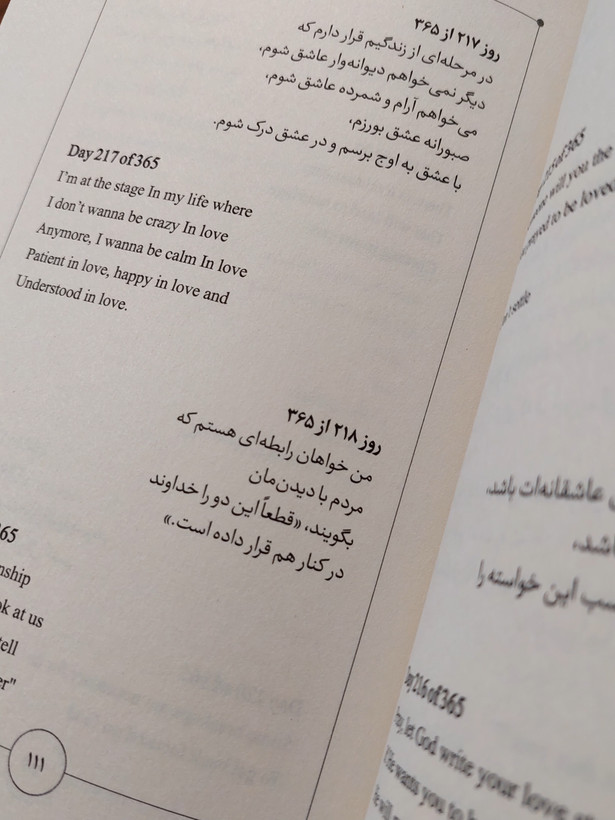 روز ۲۱۷ از ۳۶۵
در مرحله‌ای از زندگیم قرار دارم که
دیگر نمی‌خواهم دیوانه‌وار عاشق شوم،
می‌خواهم آرام و شمرده عاشق شوم،
صبورانه عشق بورزم،
با عشق به اوج برسم و در عشق درک شوم.
Day 217 of 365
I'm at the stage In my life where
I don't wanna be crazy In love
Anymore, I wanna be calm In love
Patient in love, happy in love and
Understood in love.
روز ۲۱۸ از ۳۶۵
من خواهان رابطه‌ای هستم که
مردم با دیدن‌مان
بگویند، «قطعاً این دو را خداوند
در کنار هم قرار داده است.»
65
nship
k at us
tell
er"
۱۱۱
of 365
will you the
prayed to be loved
settle
عاشقانه‌ات باشد،
باشد،
سب این خواسته را
Day 216 of 365
let God write your love
wants you to